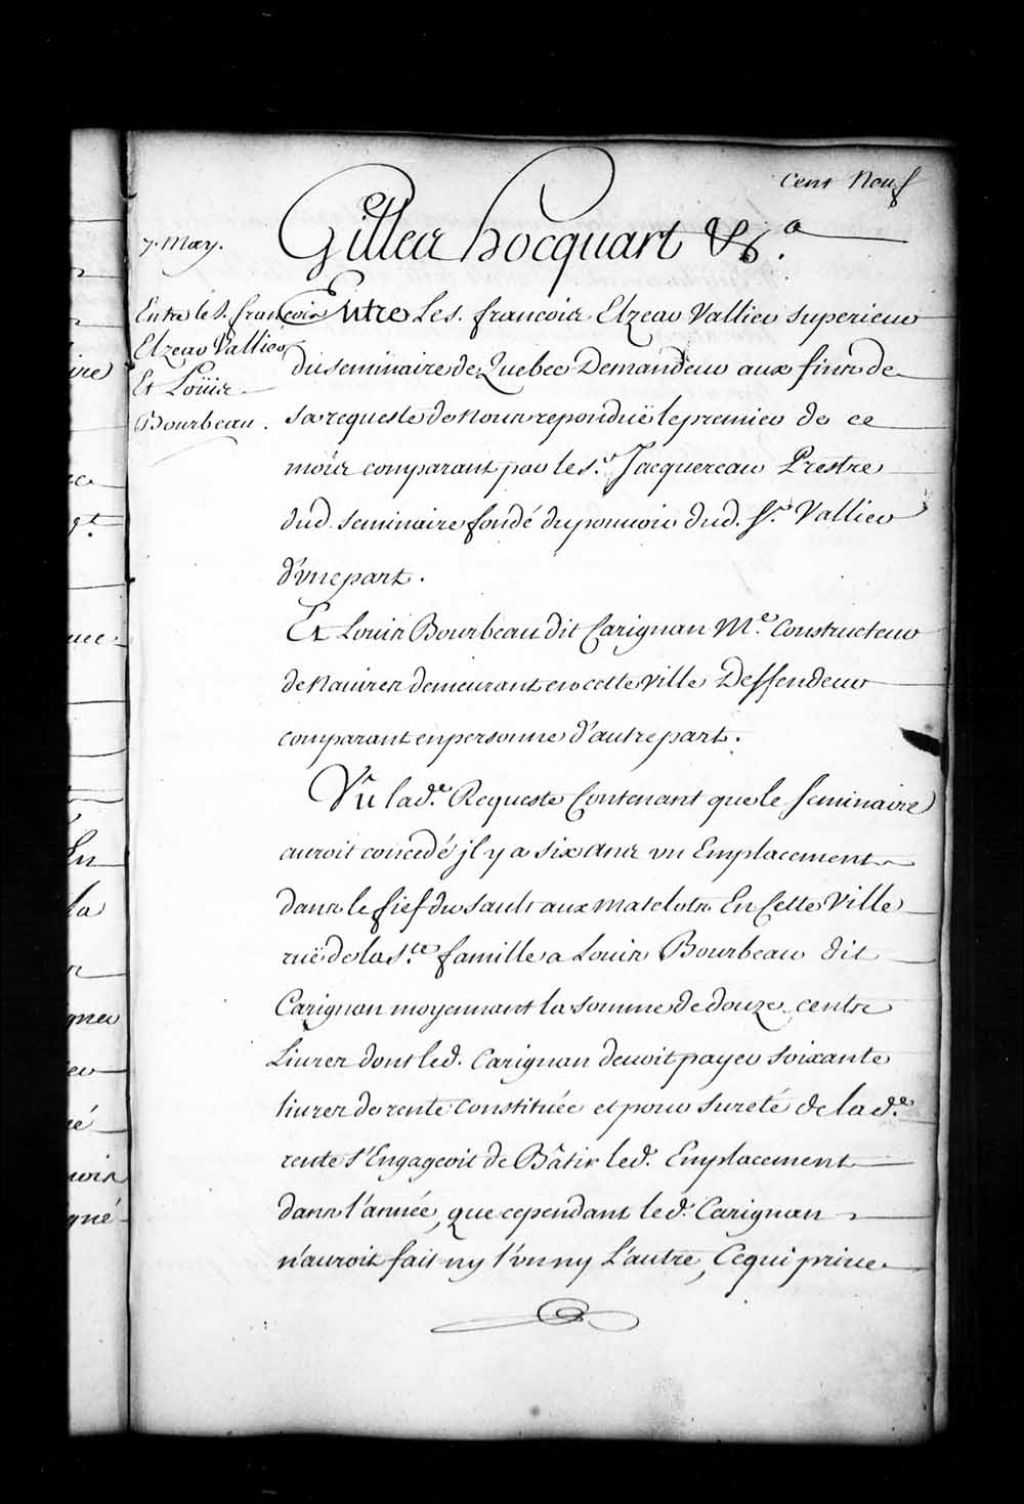 Cent Neuf
Gilles hocquart &c.a
7. May.
Entre le S. françois
Elzear Vallier
Et Loüis
Bourbeau.
Entre Le s. francois Elzear Vallier superieur
du seminaire de Quebec Demandeur aux fins de
sa requeste de Nous reponduë le premier de ce
mois comparant par le s.r Jacquereau Prestre
dud. seminaire fondé du pouuoir dud. S.r Vallier
d'vne part.
Et Louis Bourbeau dit Carignan M.e Constructeur
de Nauires demeurant en cette Ville Deffendeur
comparant en personne d'autre part.
Vû lad.e Requeste Contenant que le Seminaire
auroit concedé jl y a six ans vn Emplacement
dans le fief du sault aux matelots En Cette Ville
ruë de la S.te famille a Louis Bourbeau dit
Carignan moyennant la somme de douze cents
Liures dont led. Carignan deuoit payer soixante
liures de rente Constituée et pour sureté de lad.e
rente s'Engageoit de Bâtir led. Emplacement
dans l'année, que cependant led. Carignan
n'auroit fait ny l'vn ny L'autre, Ce qui priue
ire
ce
q.t
uce
En
la
n
gner
er
ié
uoir
gné